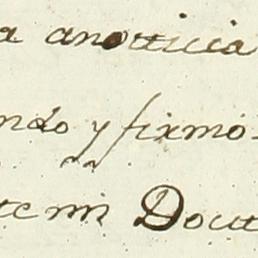 a anotticia
ndo y firmo
te mi Doct